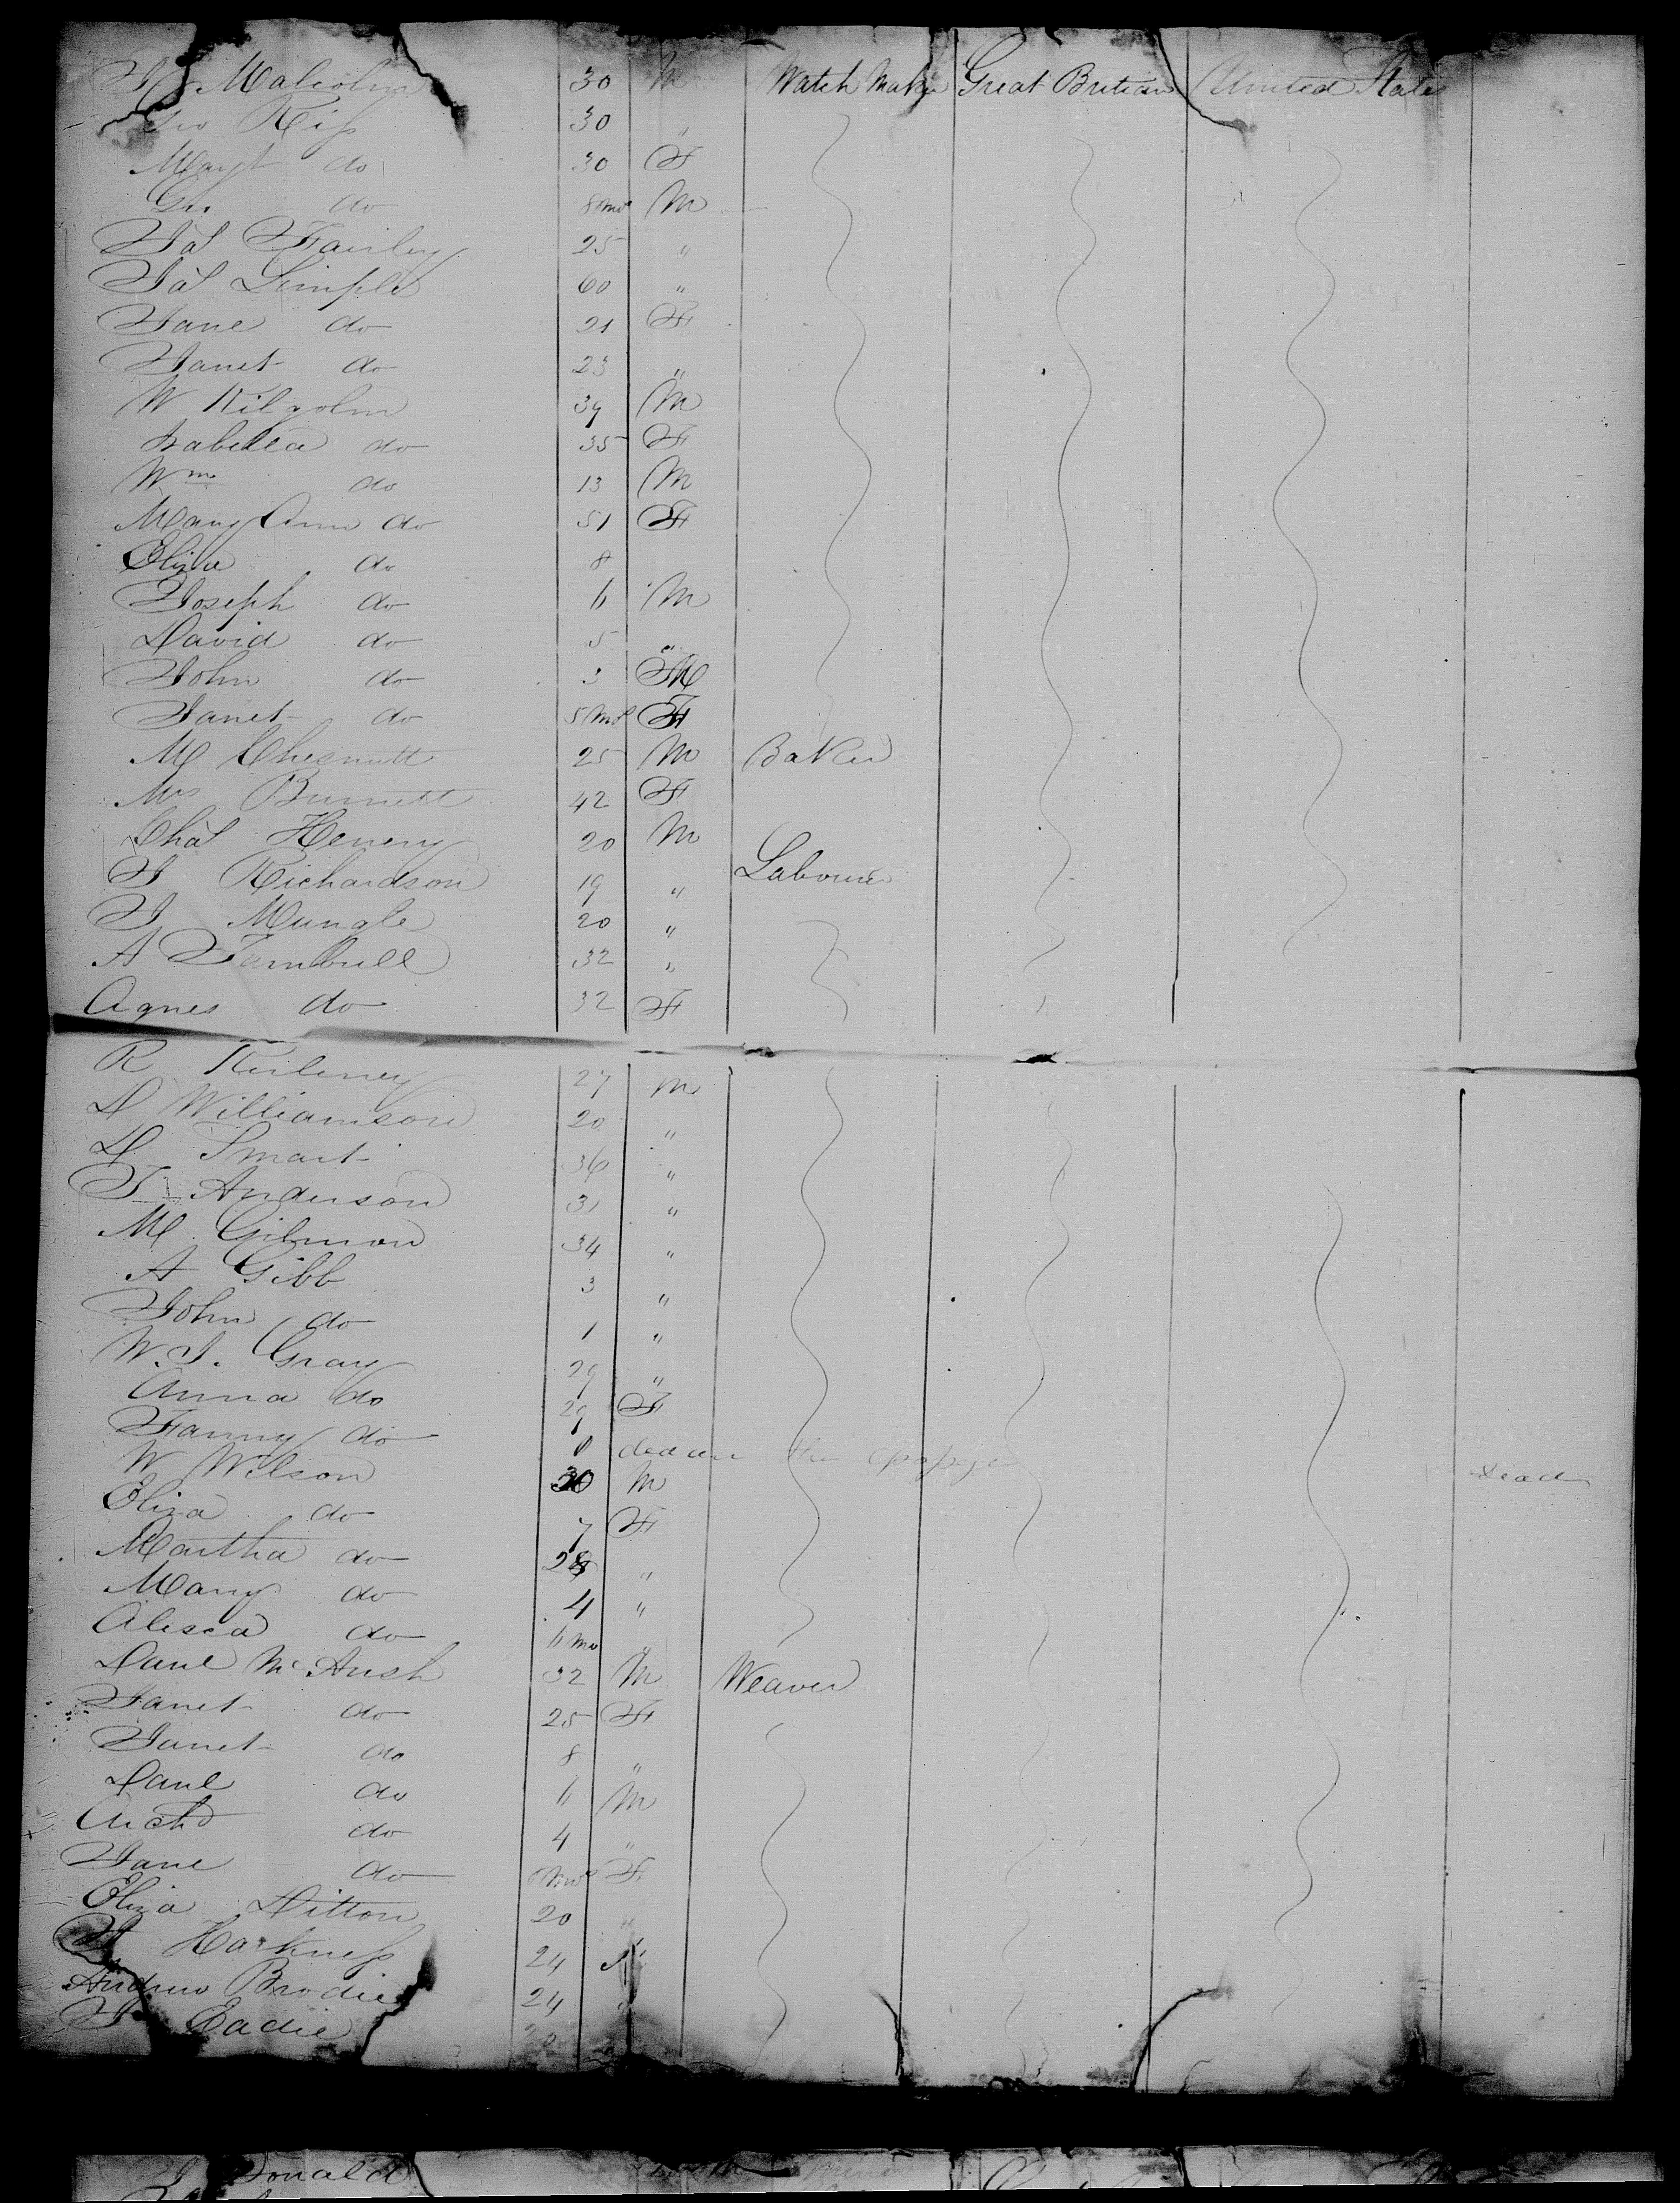 J Malcolm 30 M Watch Maker Great Britian United State
Geo Kiſs 30 "
Mayt do 30 F
Geo do 8 mo M
Jas Fairley 25 "
Jas Simple 60 "
Jane do 21 F
Janet do 23 "
W Kilgolm 39 M
Isabella do 35 F
Wm do 13 M
Mary Ann do 51 F
Eliza do 8
Joseph do 6 M
David do 5 "
John do 3 M
Janet do 5 Mos F
M Chesnutt 25 M Baker
Mrs Burnett 42 F
Chas Henery 20 M
J Richardson 19 " Labourer
J Mungle 20 "
A Turnbull 32 "
Agnes do 32 F
R 27 M
D Williamson 20 "
D Smart 36 "
J Anderson 31 "
M Gilmon 34 "
A Gibb 3 "
John do 1 "
W. J. Gray 29 "
Anna do 29 F
Fanny do the Dead
W Wilson 30 M
Eliza do 7 F
Martha do 28 "
Mary do 4 "
Alesea do 6 mo "
Danl Mc Aush 32 M Weaver
Janet do 25 F
Janet do 8 "
Danl do 6 M
Archd do 4 "
Jane do F
Eliza Ditton 20 "
Harkneſs 24
Andrew Brodie 24 "
J Eadie 20
J Donald